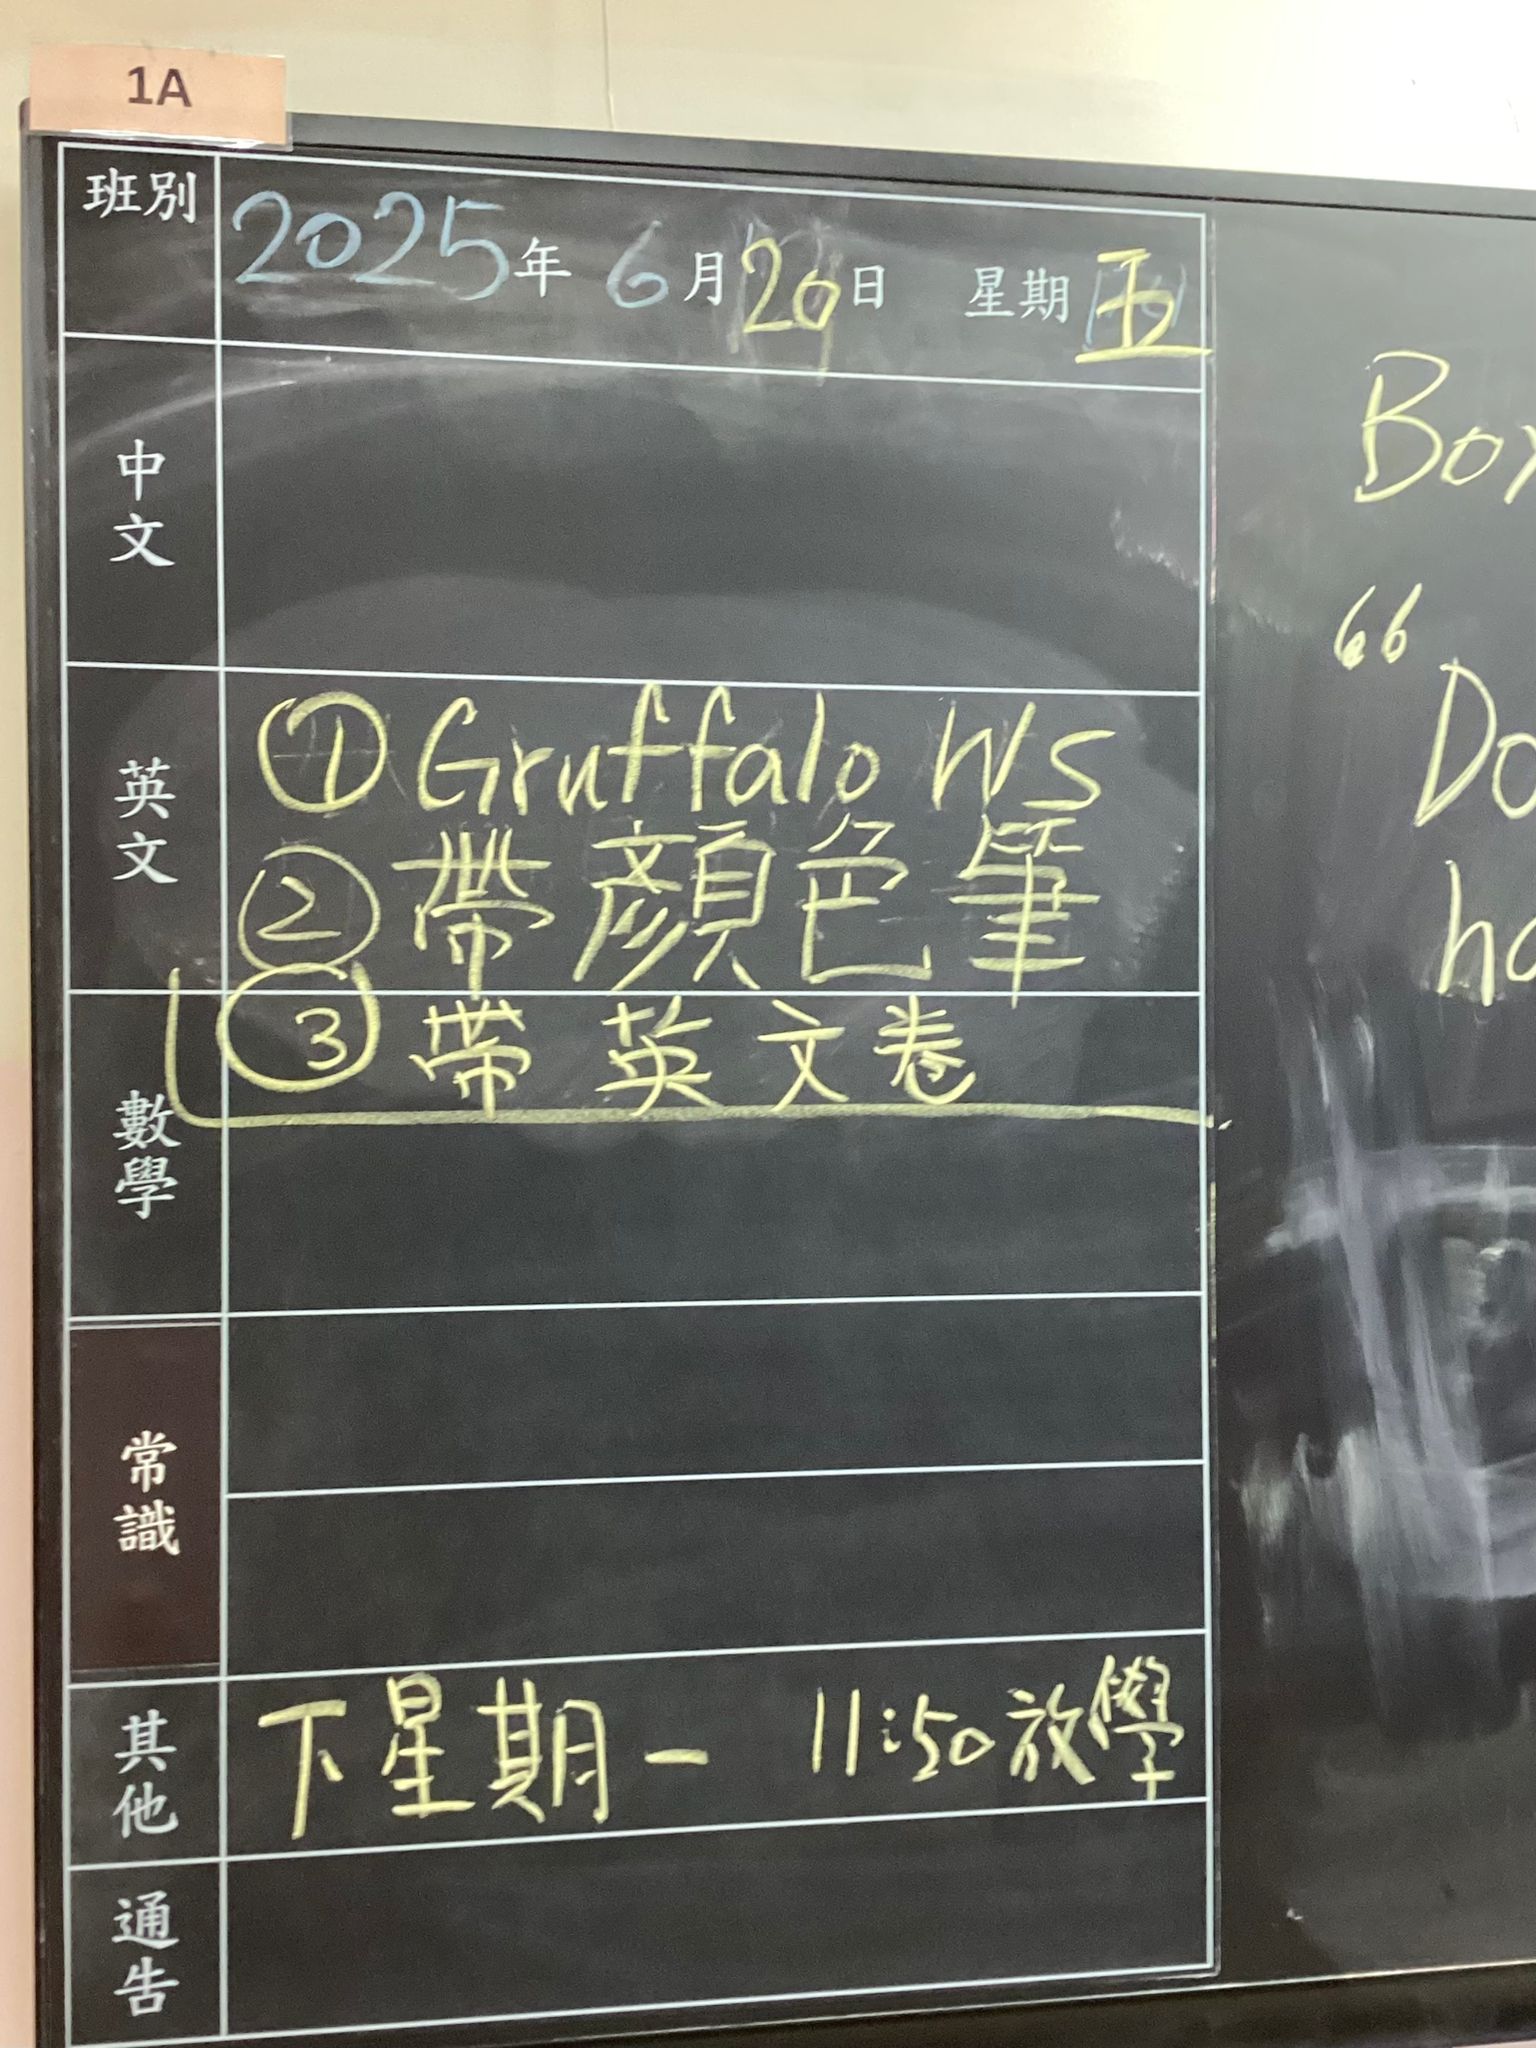 1A
班別 2025年 6月20日 星期五
中文
英文
①Gruffalo WS
②帶顏色筆
③帶英文卷
數學
常識
其他 下星期一 11:50放學
通告
Box
“
Do
ha